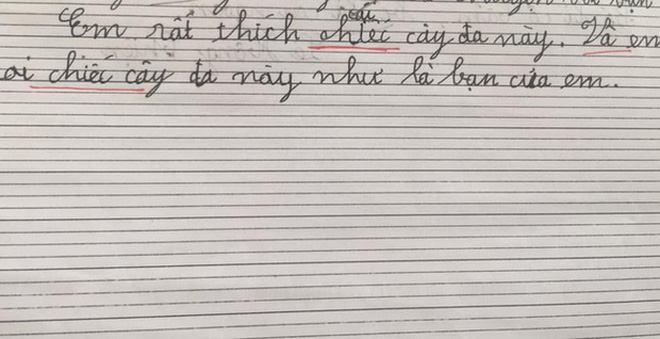 Em rất thích chiếc cây đa này. Và em
cái
ơi chiếc cây đa này như là bạn của em.